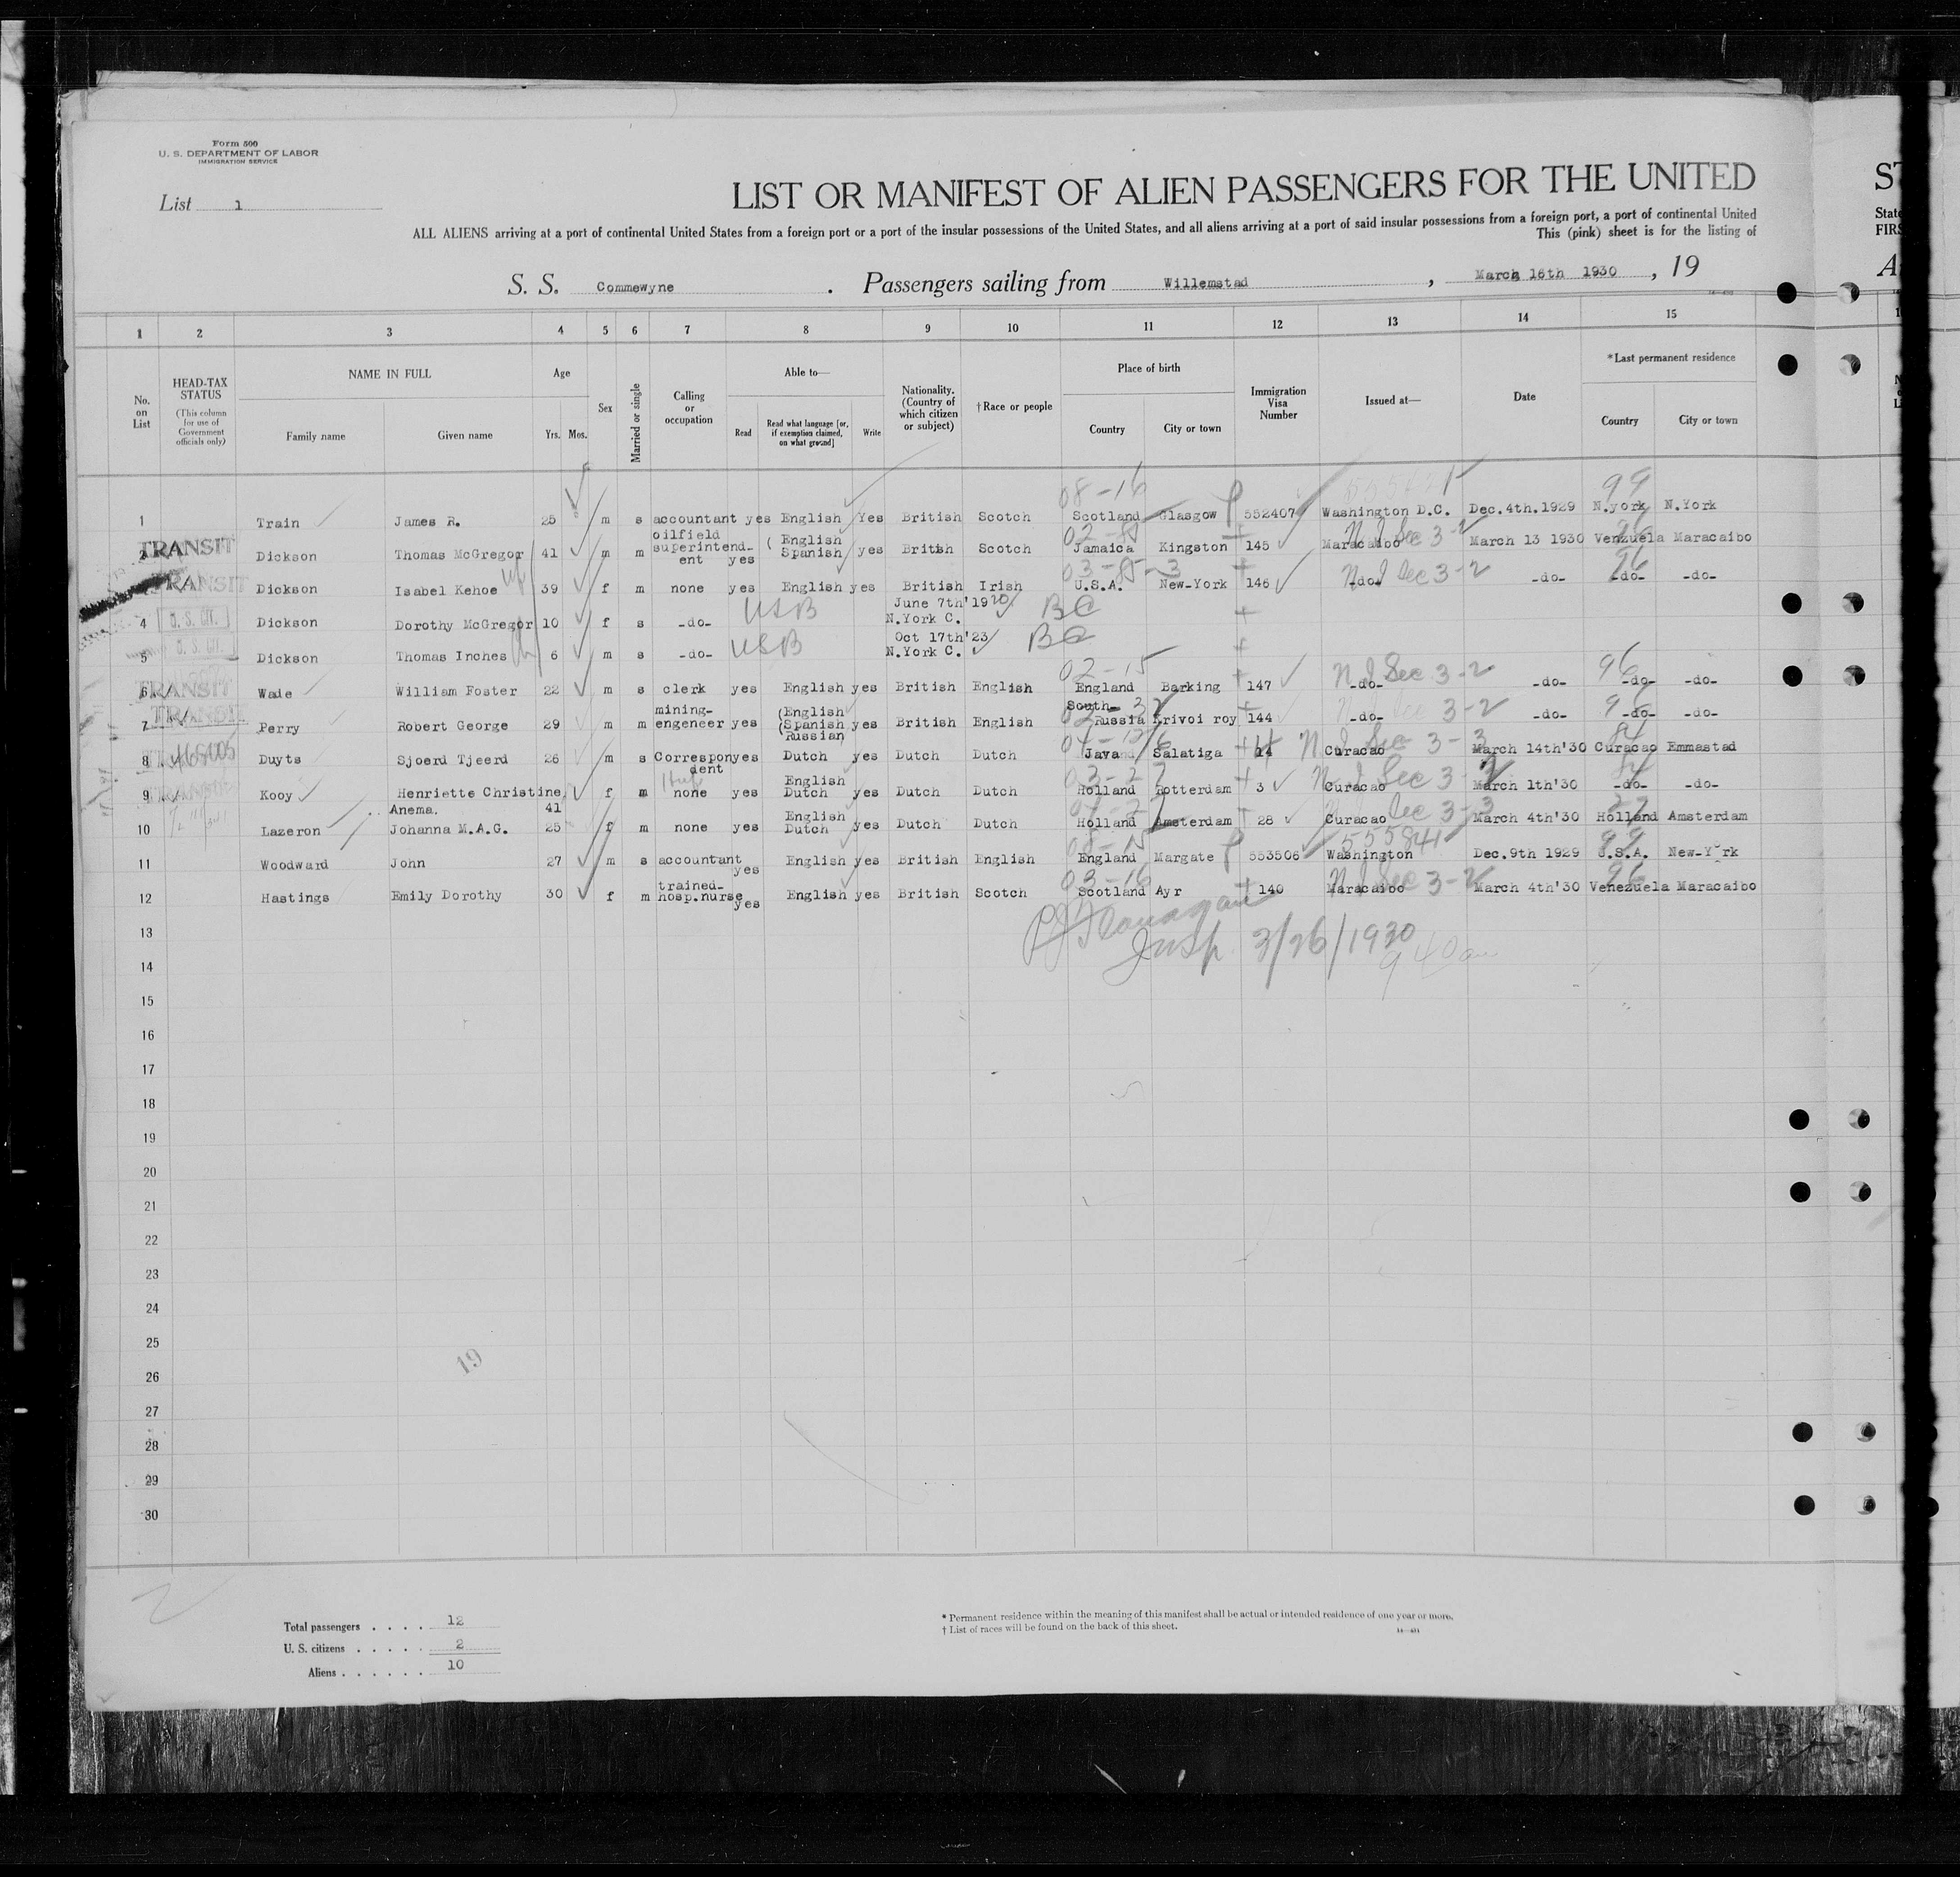 Form 500
U. S. DEPARTMENT OF LABOR
IMMIGRATION SERVICE
List 1
LIST OR MANIFEST OF ALIEN PASSENGERS FOR THE UNITED
ALL ALIENS arriving at a port of continental United States from a foreign port or a port of the insular possessions of the United States, and all aliens arriving at a port of said insular possessions from a foreign port, a port of continental United
This (pink) sheet is for the listing of
S. S. Commewyne . Passengers sailing from Willemstad , March 16th 1930 , 19
1 2 3 4 5 6 7 8 9 10 11 12 13 14 15
No. on List
HEAD-TAX STATUS (This column for use of Government officials only)
NAME IN FULL Family name Given name
Age Yrs. Mos.
Sex
Married or single
Calling or occupation
Able to— Read Read what language [or, if exemption claimed, on what ground] Write
Nationality. (Country of which citizen or subject)
† Race or people
Place of birth Country City or town
Immigration Visa Number
Issued at—
Date
*Last permanent residence Country City or town
08-16 99
1 Train James R. 25 m s accountant yes English Yes British Scotch Scotland Glasgow 552407 Washington D.C. Dec.4th.1929 N.york N.York
2 TRANSIT Dickson Thomas McGregor 41 m m oilfield superintend-ent yes (English Spanish yes British Scotch Jamaica Kingston 145 Maracaibo March 13 1930 Venzuela Maracaibo
TRANSIT Dickson Isabel Kehoe 39 f m none yes English yes British Irish U.S.A. New-York 146 -do- -do- -do- -do-
4 U. S. CIT. Dickson Dorothy McGregor 10 f s -do- USB June 7th'1920 N.York C. BC
5 U. S. CIT. Dickson Thomas Inches 6 m s -do- USB Oct 17th'23 N.York C. BC
6 TRANSIT Wade William Foster 22 m s clerk yes English yes British English England Barking 147 -do- -do- -do- -do-
7 TRANSIT Perry Robert George 29 m m mining-engeneer yes (English (Spanish Russian yes British English South-Russia Krivoi roy 144 -do- -do- -do- -do-
8 Duyts Sjoerd Tjeerd 26 m s Correspondent yes Dutch yes Dutch Dutch Java Salatiga 14 Curacao March 14th'30 Curacao Emmastad
9 Kooy Henriette Christine, Anema. 41 f m none yes English Dutch yes Dutch Dutch Holland Rotterdam 3 Curacao March 1th'30 -do- -do-
10 Lazeron Johanna M.A.G. 25 f m none yes English Dutch yes Dutch Dutch Holland Amsterdam 28 Curacao March 4th'30 Holland Amsterdam
11 Woodward John 27 m s accountant yes English yes British English England Margate 553506 Washington Dec.9th 1929 U.S.A. New-York
12 Hastings Emily Dorothy 30 f m trained-hosp.nurse yes English yes British Scotch Scotland Ayr 140 Maracaibo March 4th'30 Venezuela Maracaibo
13 Insp. 3/26/1930
14
15
16
17
18
19
20
21
22
23
24
25
19
26
27
28
29
30
Total passengers . . . . 12
U. S. citizens . . . . . 2
Aliens . . . . . . 10
* Permanent residence within the meaning of this manifest shall be actual or intended residence of one year or more.
† List of races will be found on the back of this sheet.